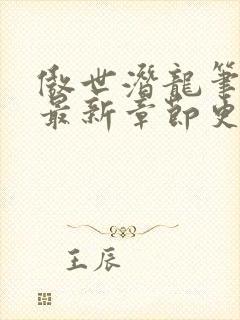 傲世潛龍筆
最新章節史
王辰